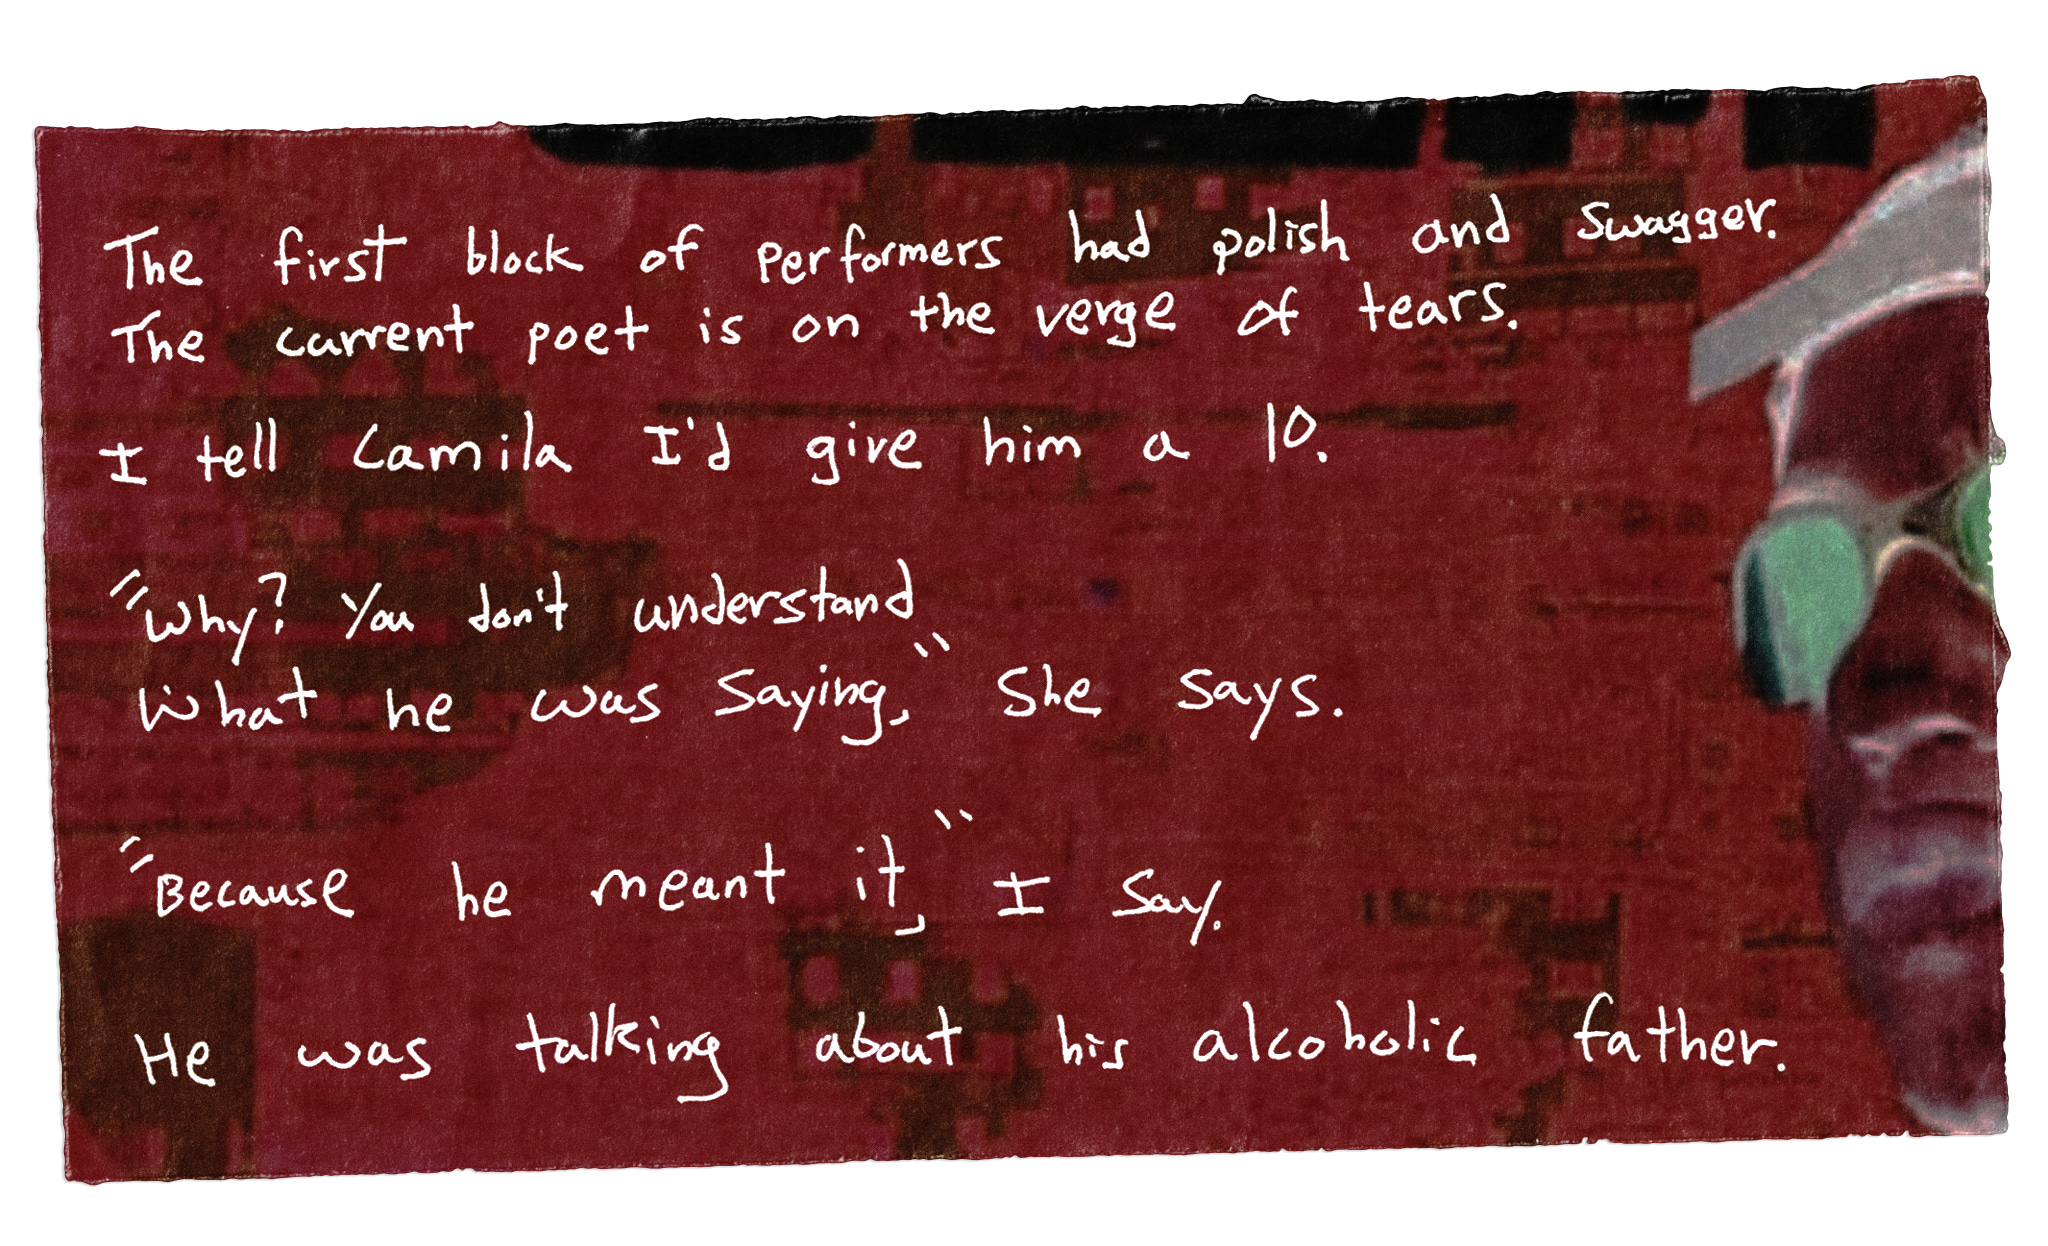 The first block of performers had polish and swagger.
The current poet is on the verge of tears.
I tell Camila I'd give him a 10.
"Why? You don't understand
what he was saying," she says.
"Because he meant it," I say.
He was talking about his alcoholic father.